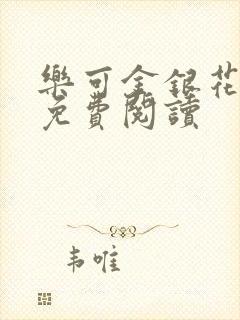 樂可金銀花
免費閱讀
韦唯